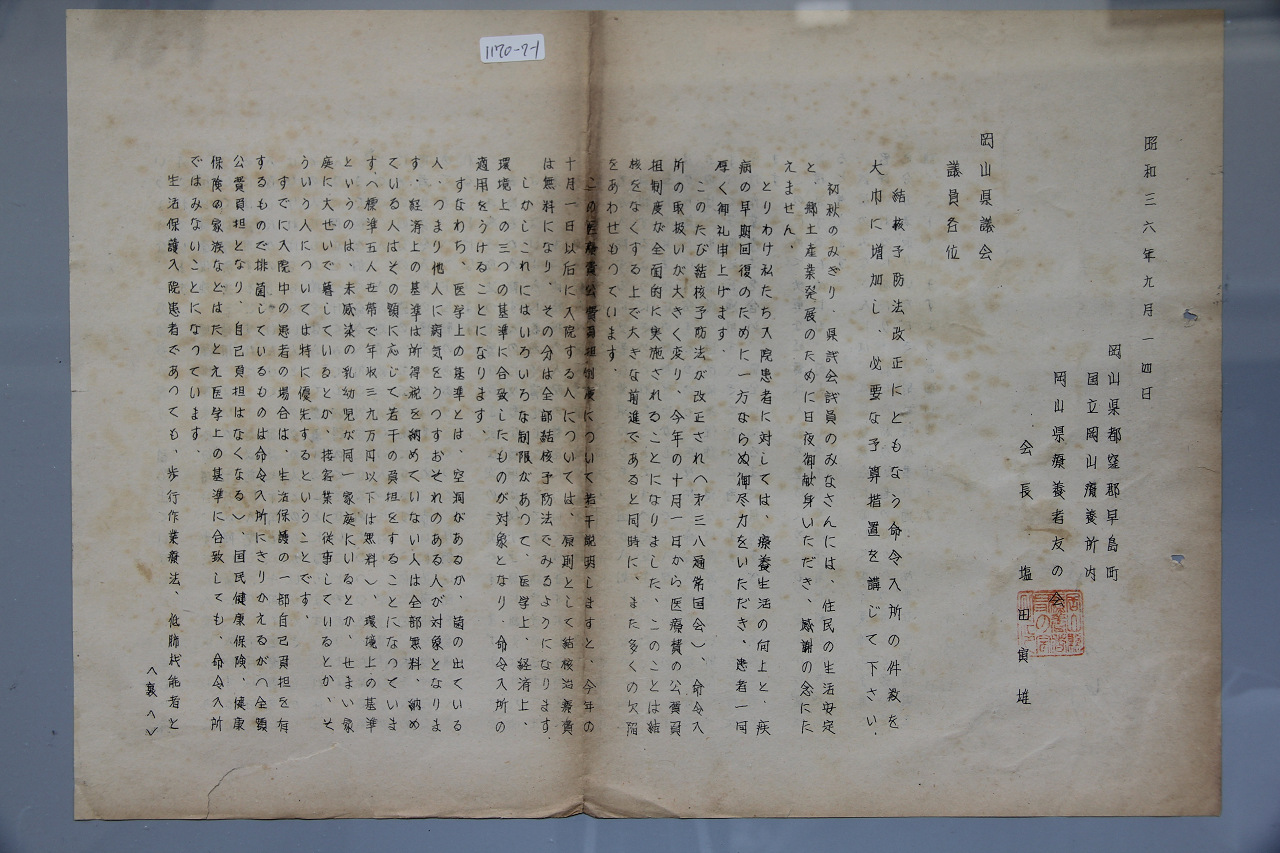 1170-2-1
昭和三六年九月一四日
岡山県都窪郡早島町
国立岡山療養所内
岡山県療養者友の会
会長 塩田寅雄
岡山県議会
議員各位
結核予防法改正にともなう命令入所の件数を
大巾に増加し、必要な予算措置を講じて下さい.
初秋のみぎり.県議会議員のみなさんには、住民の生活安定
と、郷土産業発展のために日夜御献身いただき、感謝の念にた
えません、
とりわけ私たち入院患者に対しては、療養生活の向上と、疾
病の早期回復のために一方ならぬ御尽力をいただき、患者一同
厚く御礼申上げます.
このたび結核予防法が改正され(才三八通常国会)、命令入
所の取扱いが大きく変り、今年の十月一日から医療費の公費負
担制度が全面的に実施されることになりました、このことは結
核をなくする上で大きな前進であると同時に、また多くの欠陥
をあわせもつています.
この医療費公費負担制度について若干説明しますと、今年の
十月一日以后に入院する人については、原則として結核治療費
は無料になり、その分は全部結核予防法でみるようになります.
しかしこれにはいろいろな制限があつて、医学上、経済上、
環境上の三つの基準に合致したものが対象となり.命令入所の
適用をうけることになります、
すなわち、医学上の基準とは、空洞があるか、菌の出ている
人、つまり他人に病気をうつすおそれのある人が対象となりま
す、経済上の基準は所得税を納めていない人は全部無料、納め
ている人はその額に応じて若干の負担をすることになつていま
す(標準五人世帯で年収三九万円以下は無料)、環境上の基準
というのは、未感染の乳幼児が同一家庭にいるとか、せまい家
庭に大ぜいで暮しているとか、接客業に従事しているとか、そ
ういう人については特に優先するということです、
すでに入院中の患者の場合は、生活保護の一部自己負担を有
するもので排菌しているものは命令入所にきりかえるが(全額
公費負担となり、自己負担はなくなる)、国民健康保険、健康
保険の家族などはたとえ医学上の基準に合致しても、命令入所
ではみないことになつています.
生活保護入院患者であつても、歩行作業療法、低肺機能者と
(裏へ)